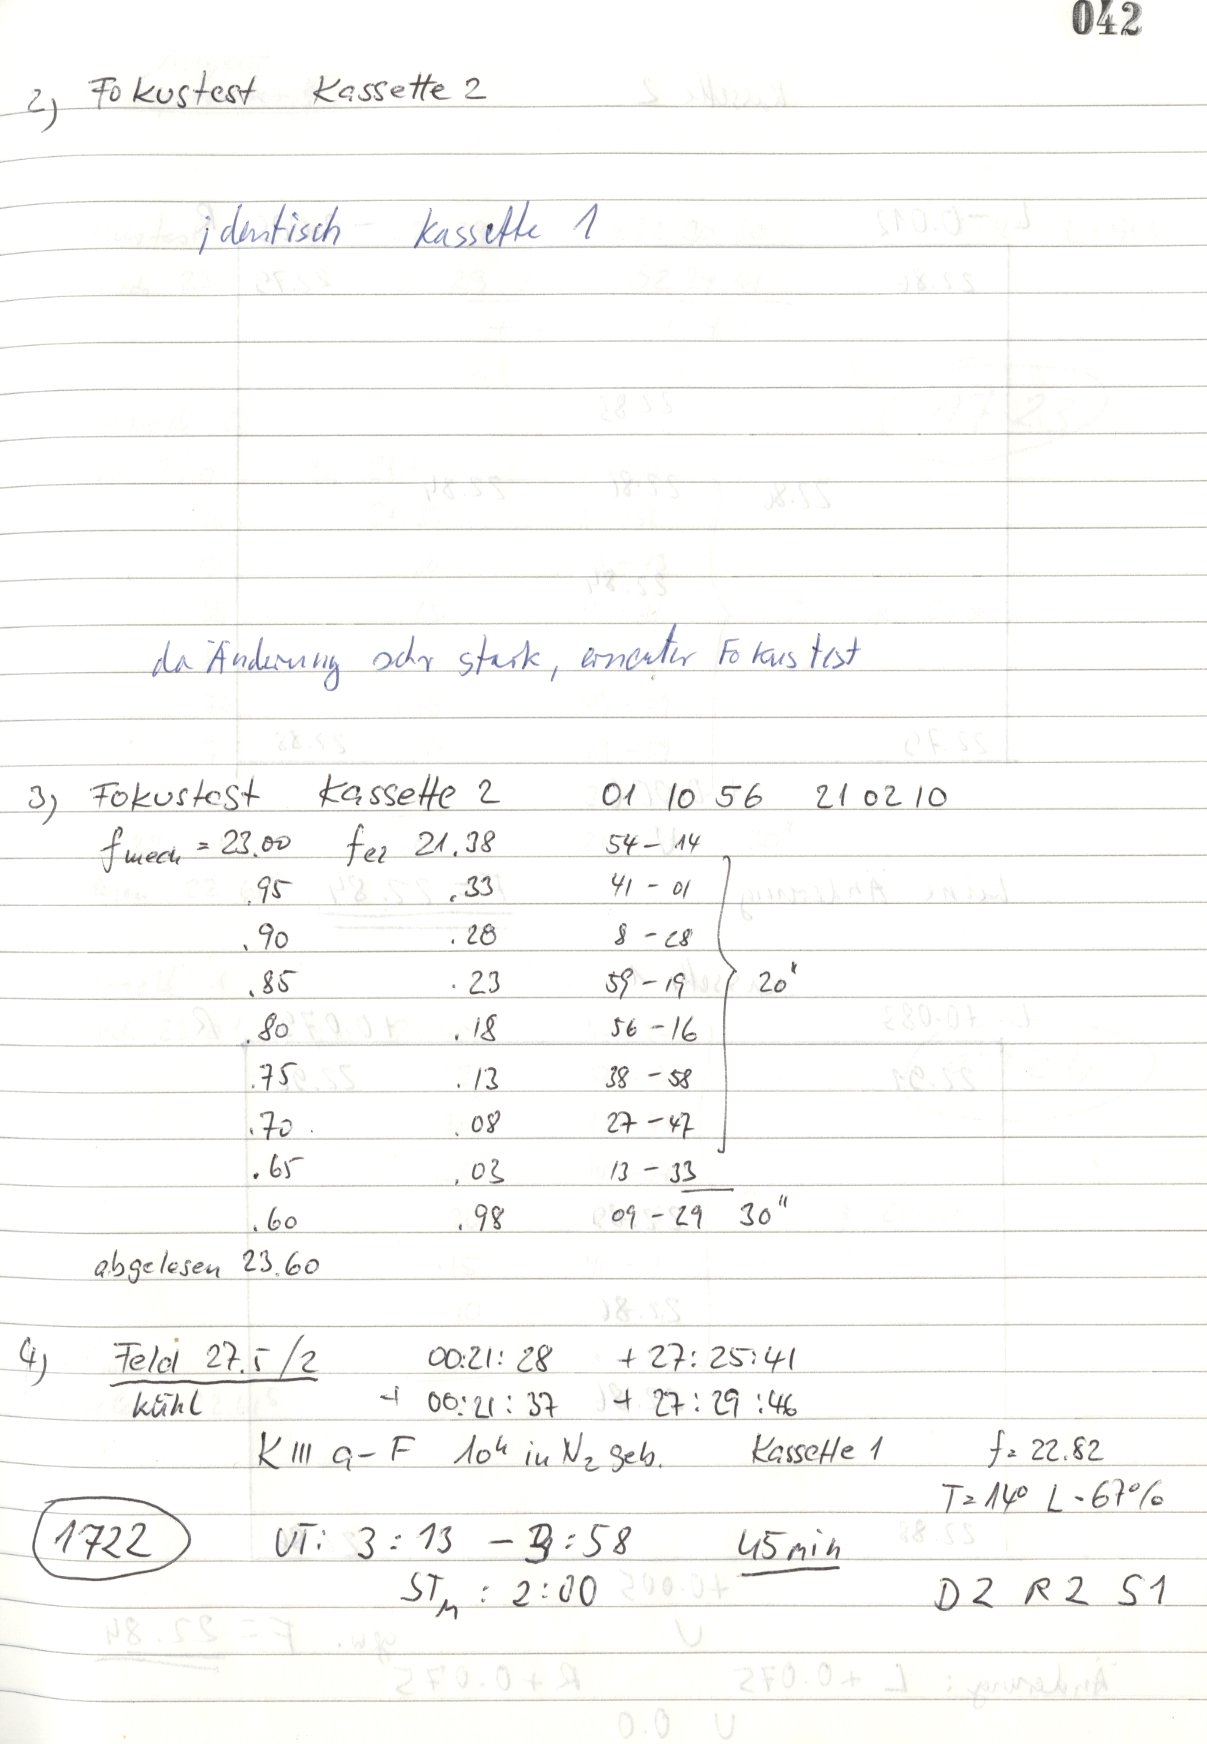 042
2) Fokustest Kassette 2
identisch Kassette 1
da Änderung sehr stark, erneuter Fokustest
3) Fokustest Kassette 2 01 10 56 21 02 10
fmech = 23.00 fez 21.38 54 - 14
.95 .33 41 - 01
.90 .28 8 - 28
.85 .23 59 - 19 20"
.80 .18 56 - 16
.75 .13 38 - 58
.70 .08 27 - 47
.65 .03 13 - 33
.60 .98 09 - 29 30"
abgelesen 23.60
4) Feld 27.5/2 00:21:28 + 27:25:41
kühl + 00:21:37 + 27:29:46
K III a-F 10h in N2 geb. Kassette 1 f= 22.82
T=14° L-67%
1722 UT: 3:13 - 3:58 45 min
STM: 2:00 D2 R2 S1